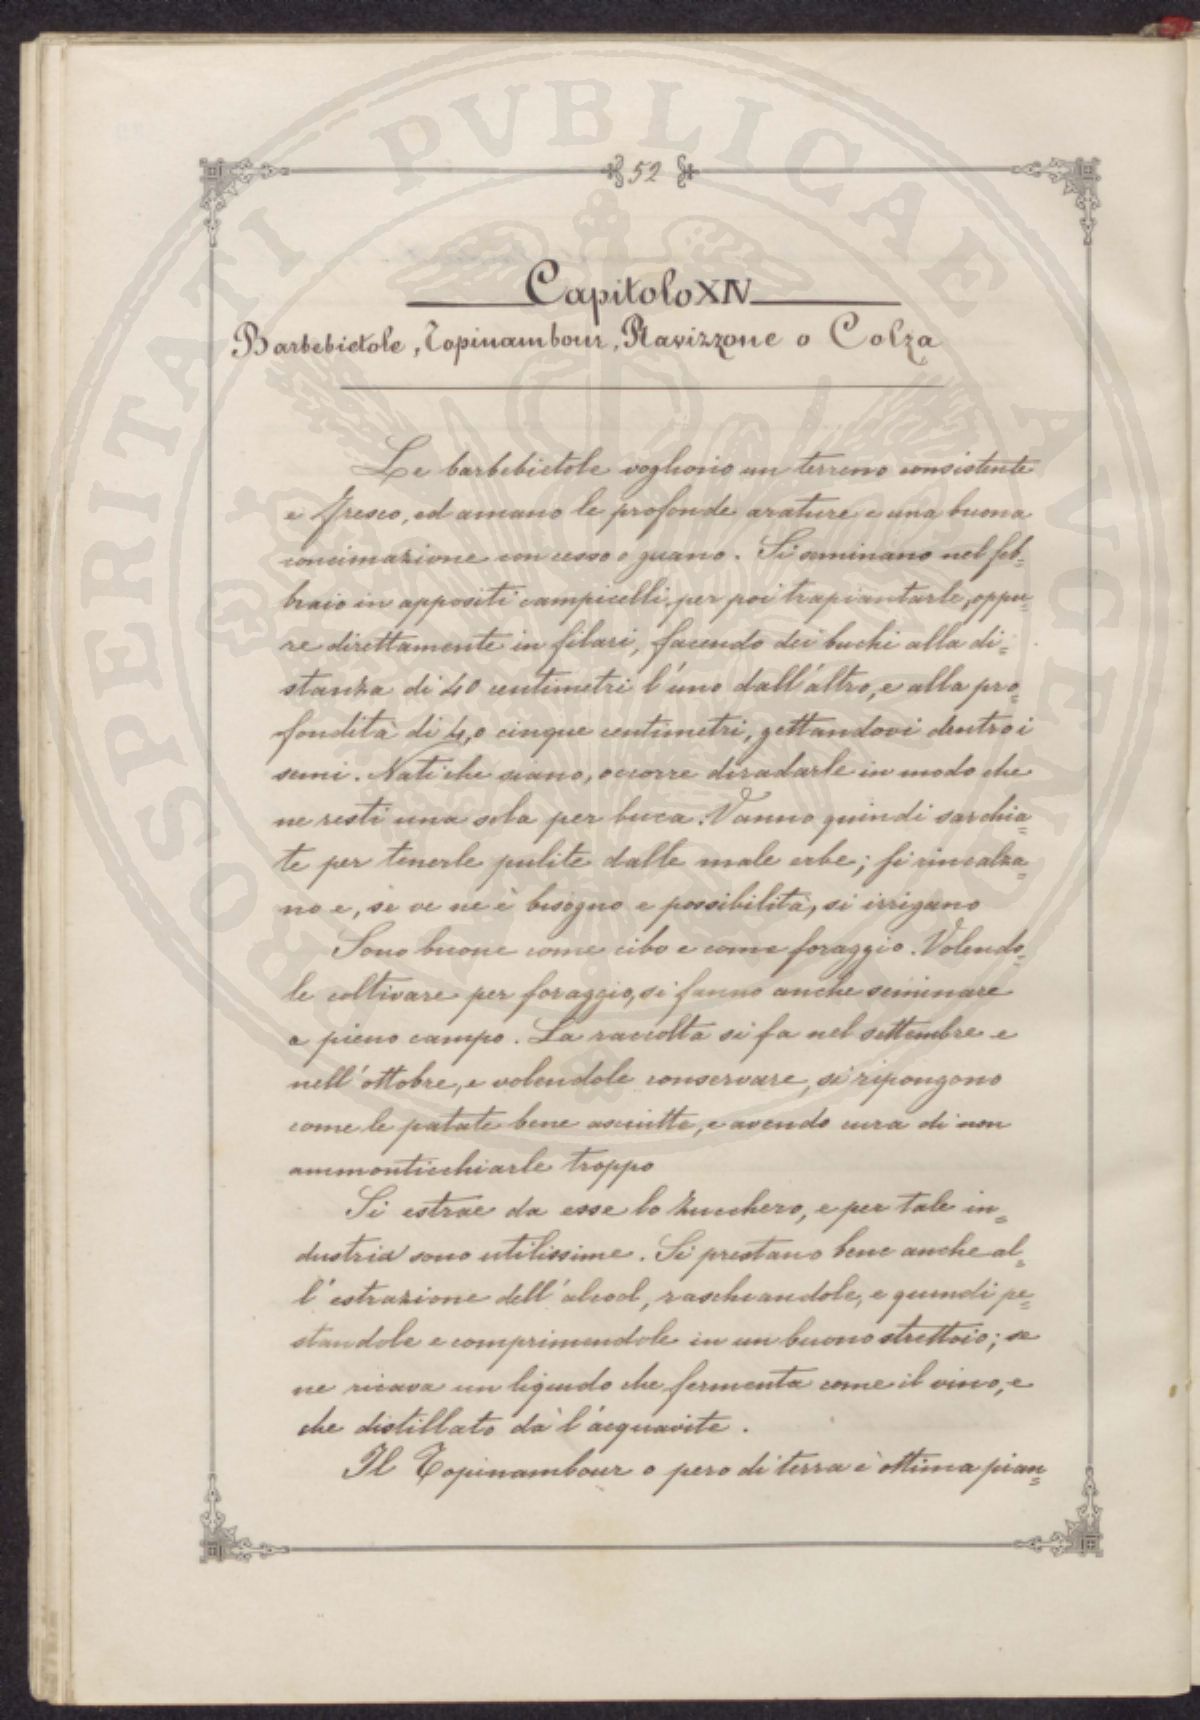 52
Capitolo XIV
Barbebietole, Topinambour, Ravizzone o Colza
Le barbebietole vogliono un terreno consistente
e fresco, ed amano le profonde arature e una buona
concimazione con cesso o guano. Si seminano nel feb-
braio in appositi campicelli, per poi trapiantarle, oppu=
re direttamente in filari, facendo dei buchi alla di=
stanza di 40 centimetri l'uno dall'altro, e alla pro=
fondità di 4, o cinque centimetri, gettandovi dentro i
semi. Nati che siano, occorre diradarle in modo che
ne resti una sola per buca. Vanno quindi sarchia=
te per tenerle pulite dalle male erbe; si rincalza=
no e, se ve ne è bisogno e possibilità, si irrigano
Sono buone come cibo e come foraggio. Volendo=
le coltivare per foraggio, si fanno anche seminare
a pieno campo. La raccolta si fa nel settembre e
nell'ottobre, e volendole conservare, si ripongono
come le patate bene asciutte, e avendo cura di non
ammonticchiarle troppo
Si estrae da esse lo zucchero, e per tale in=
dustria sono utilissime. Si prestano bene anche al=
l'estrazione dell'alcool, raschiandole, e quindi pe=
standole e comprimendole in un buono strettoio; se
ne ricava un liquido che fermenta come il vino, e
che distillato dà l'acquavite.
Il Topinambour o pero di terra è ottima pian=
PROSPERITATI PVBLICAE AVGENDAE